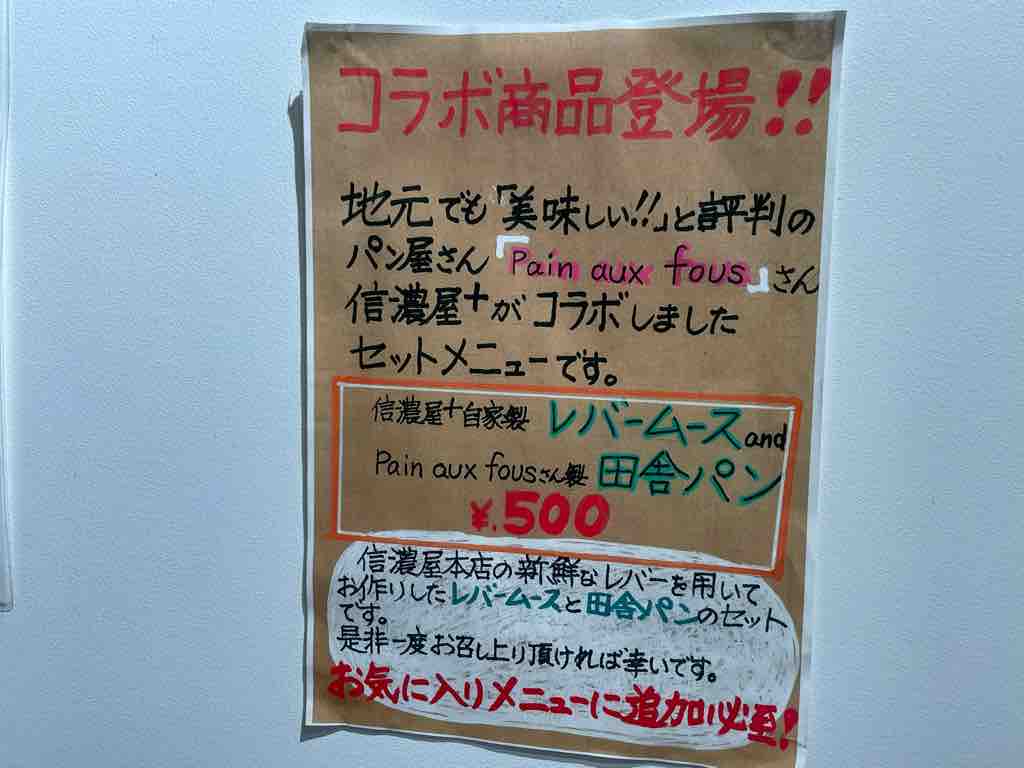 コラボ商品登場!!
地元でも「美味しい!!」と評判の
パン屋さん「Pain aux fous」さん
信濃屋+がコラボしました
セットメニューです。
信濃屋+自家製 レバームース and
Pain aux fousさん製 田舎パン
¥.500
信濃屋本店の新鮮なレバーを用いて
お作りしたレバームースと田舎パンのセット
です。
是非一度お召し上り頂ければ幸いです。
お気に入りメニューに追加必至!